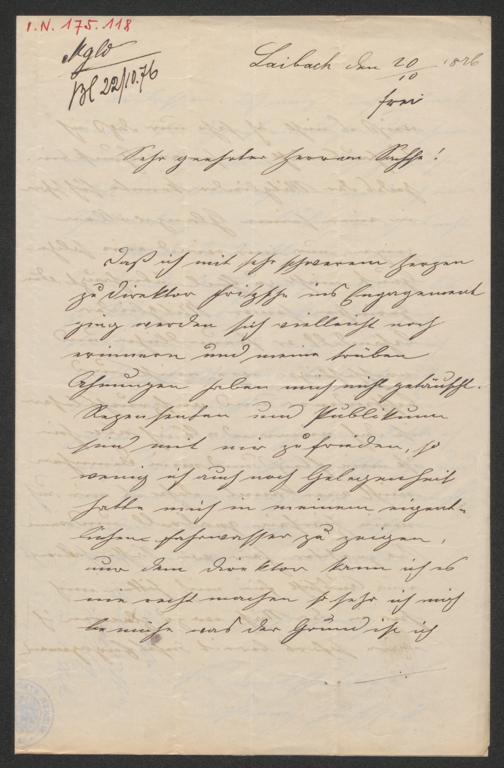 I.N. 175.118
Mgld
Bl 22/10.76
Laibach den 20/10 1876
frei
Sehr geehrter Herr von Sachse!
Daß ich mit sehr schwerem Herzen
zu Direktor Fritzsche ins Engagement
ging werden sich vielleicht noch
erinnern und meine trüben
Ahnungen haben mich nicht getäuscht.
Rezensenten und Publikum
sind mit mir zufrieden, so
wenig ich auch noch Gelegenheit
hatte mich in meinem eigent-
lichen Fahrwasser zu zeigen,
nur dem Direktor kann ich es
nie recht machen so sehr ich mich
bemühe was der Grund ist ich